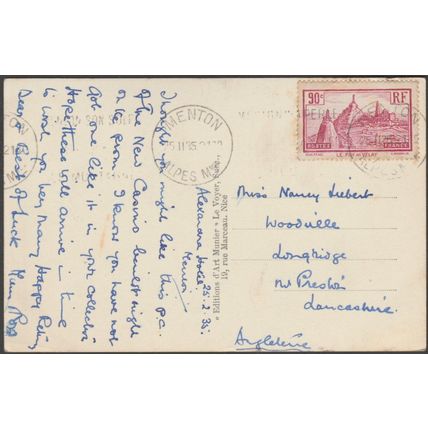 Alexandra Hotel.
Menton
25.2.35.
I thought you might like this P.C.
of the New Casino built right
on to prom. I know you have not
got one like it in your collection
Hope these will arrive in time
to wish you very many Happy Retns
Dear & Best of Luck
"Editions d'Art Munier" Le Voyer, Succ.,
19, rue Marceau, Nice
MENTON
25 II 35
ALPES Mmes
MENTON
SON SOLEIL
90c
RF
POSTES
FRANCE
LE PUY-EN-VELAY
MENTON
Miss Nancy
Woodville
Longridge
nr Preston
Lancashire.
Angleterre